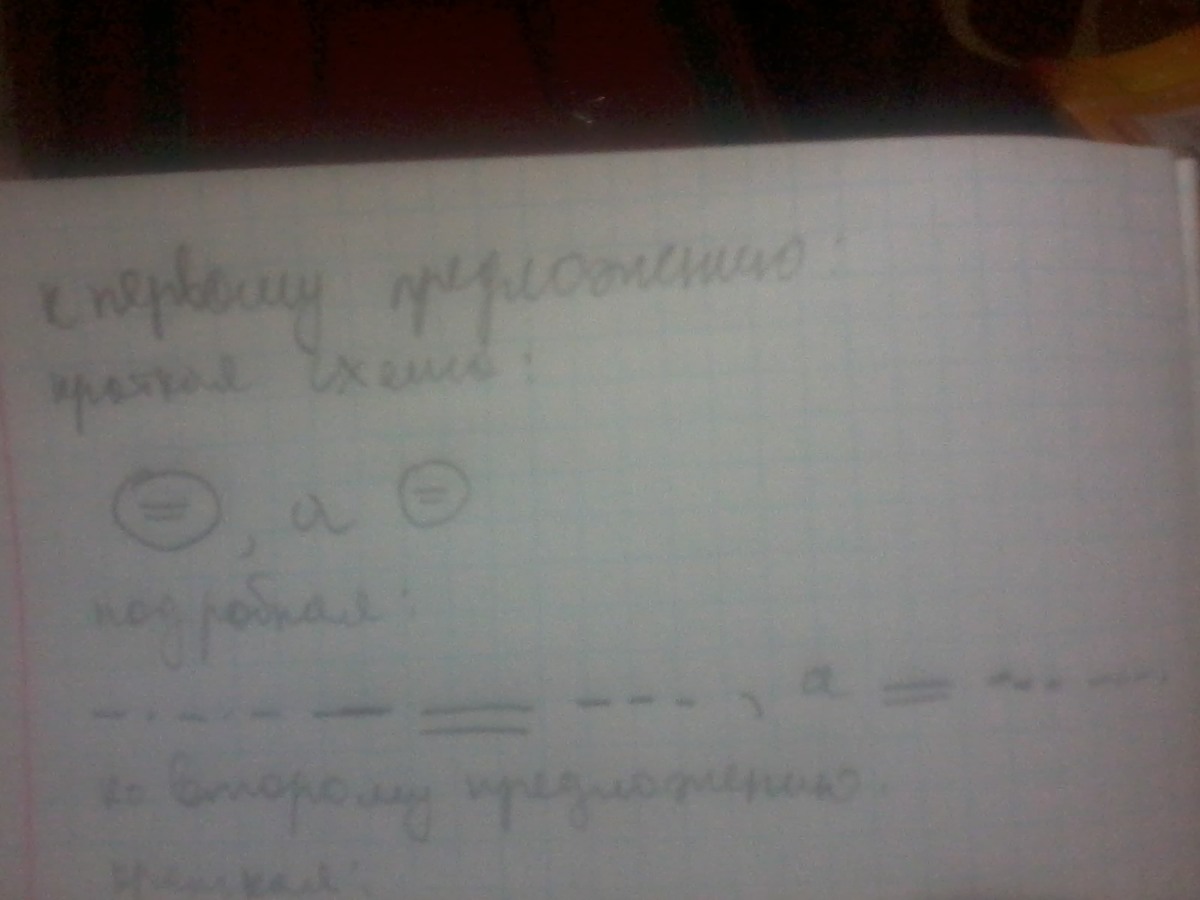 к первому предложению:
краткая схема:
, а
подробная:
, а
ко второму предложению.
краткая: